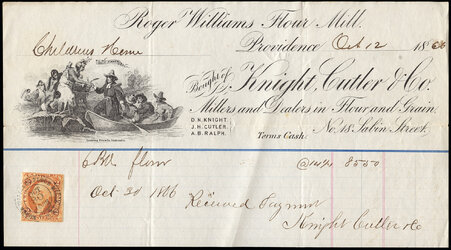 Roger Williams Flour Mill.
Providence Oct 12 1866
Childrens Home
Bought of Knight, Cutler & Co.
Millers and Dealers in Flour and Grain,
D. N. KNIGHT.
J. H. CUTLER.
A. B. RALPH.
Terms Cash:
No. 18 Sabin Street.
6 Bbl flour @ 14 1/4 85 50
Oct 30 1866
Received Payment
Knight Cutler & Co